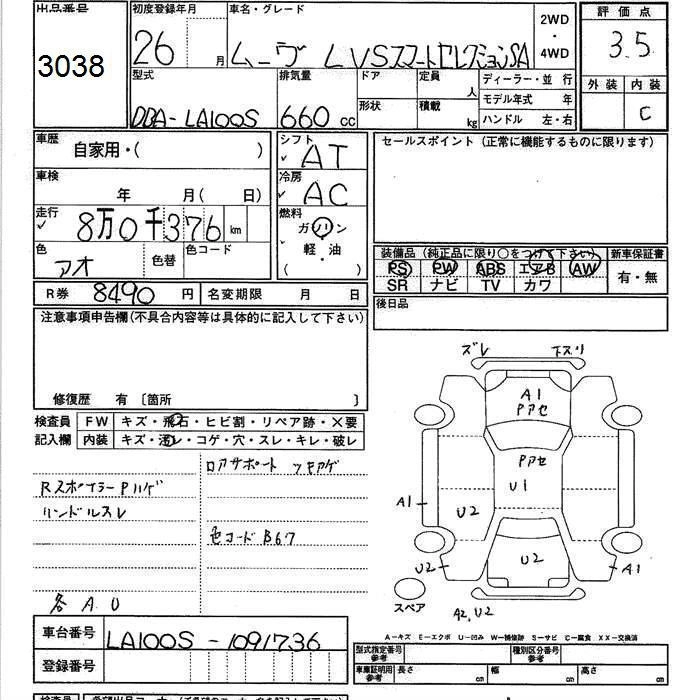 出品番号
3038
初度登録年月
26 月
車名・グレード
ムーヴ L VSスマートセレクションSA
2WD
・
4WD
評価点
3.5
型式
DBA-LA100S
排気量
660 cc
ドア
形状
定員
人
積載
kg
ディーラー・並 行
モデル年式 年
ハンドル 左・右
外装 内装
C
車歴
自家用・( )
シフト
AT
セールスポイント(正常に機能するものに限ります)
車検
年 月( 日)
冷房
AC
走行
8万0千376 km
燃料
ガソリン
・
軽・油
( )
色
アオ
色替
色コード
装備品(純正品に限り○をつけて下さい)
新車保証書
PS PW ABS エアB AW
有・無
SR ナビ TV カワ
R券 8490 円
名変期限 月 日
後日品
注意事項申告欄(不具合内容等は具体的に記入して下さい)
修復歴 有〔箇所 〕
検査員
記入欄
FW キズ・飛石・ヒビ割・リペア跡・×要
内装 キズ・汚レ・コゲ・穴・スレ・キレ・破レ
ズレ
A1
Pアセ
Pアセ
U1
A1
U2
U2
U2
A1
スペア
A2, U2
ロアサポート
Rスポイラー Pハゲ
ハンドルスレ
色コード B67
各 A U
A-キズ E-エクボ U-凹み W-補修跡 S-サビ C-腐食 XX-交換済
車台番号
LA100S-1091736
登録番号
型式指定番号
参考
種別区分番号
参考
車庫証明用
参考
長さ cm
幅 cm
高さ cm